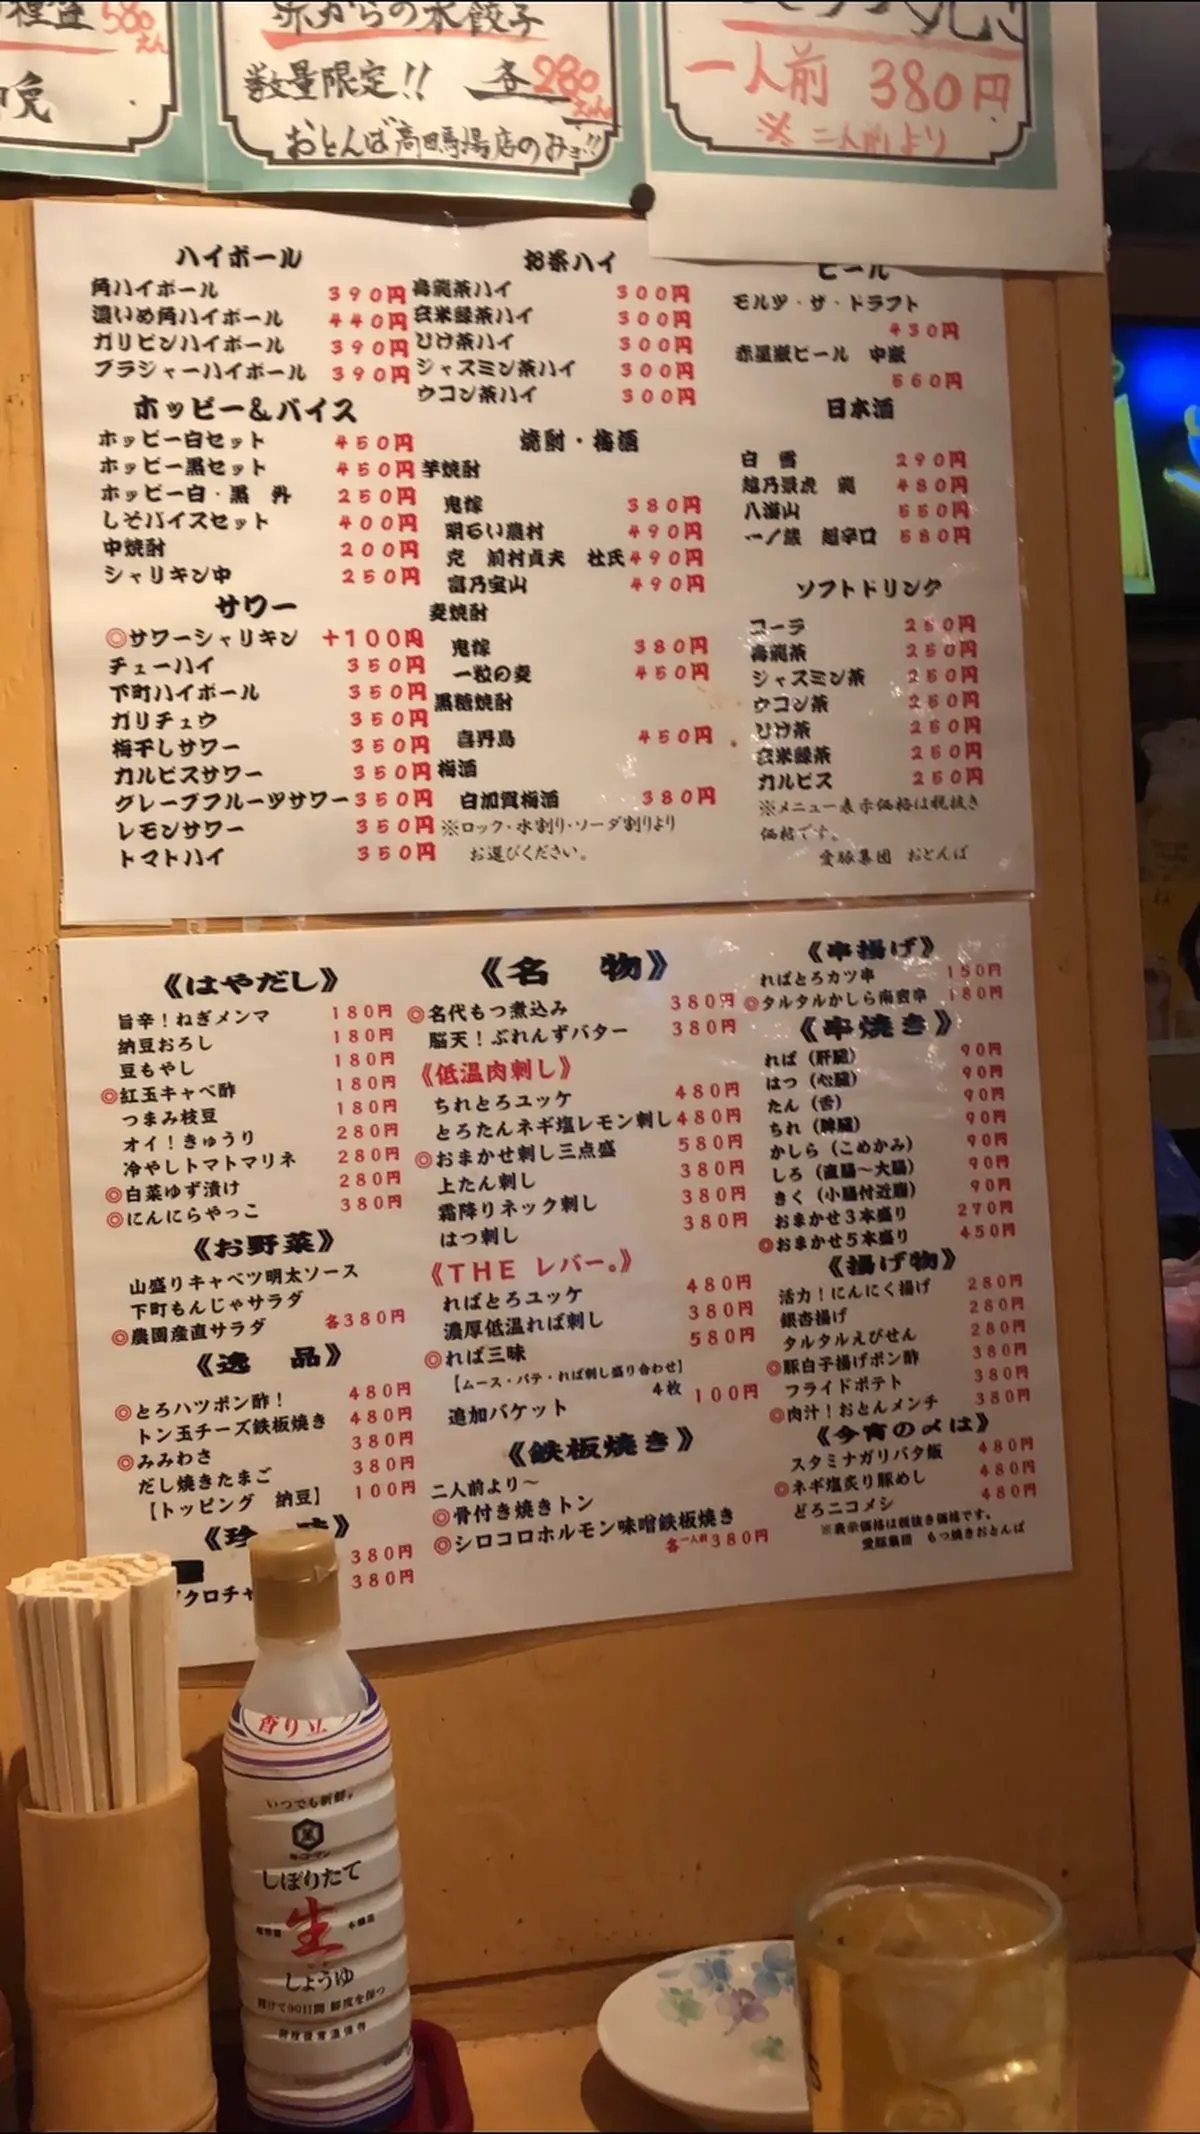 580えん
赤からの水餃子
数量限定!! 各280えん
おとんば高田馬場店のみョ!!
一人前 380円
※二人前より
ハイボール
角ハイボール 390円
濃いめ角ハイボール 440円
ガリビンハイボール 390円
ブラジャーハイボール 390円
ホッピー&バイス
ホッピー白セット 450円
ホッピー黒セット 450円
ホッピー白・黒 外 250円
しそバイスセット 400円
中焼酎 200円
シャリキン中 250円
サワー
◎サワーシャリキン +100円
チューハイ 350円
下町ハイボール 350円
ガリチュウ 350円
梅干しサワー 350円
カルピスサワー 350円
グレープフルーツサワー 350円
レモンサワー 350円
トマトハイ 350円
お茶ハイ
烏龍茶ハイ 300円
玄米緑茶ハイ 300円
しけ茶ハイ 300円
ジャスミン茶ハイ 300円
ウコン茶ハイ 300円
焼酎・梅酒
芋焼酎
鬼嫁 380円
明るい農村 490円
克 前村貞夫 杜氏 490円
富乃宝山 490円
麦焼酎
鬼嫁 380円
一粒の麦 450円
黒糖焼酎
喜界島 450円
梅酒
白加賀梅酒 380円
※ロック・水割り・ソーダ割りより
お選びください。
ビール
モルツ・ザ・ドラフト
430円
赤星瓶ビール 中瓶
560円
日本酒
白 雪 290円
越乃景虎 龍 480円
八海山 550円
一ノ蔵 超辛口 580円
ソフトドリンク
コーラ 250円
烏龍茶 250円
ジャスミン茶 250円
ウコン茶 250円
しけ茶 250円
玄米緑茶 250円
カルピス 250円
※メニュー表示価格は税抜き
価格です。
愛豚集団 おとんば
《はやだし》
旨辛!ねぎメンマ 180円
納豆おろし 180円
豆もやし 180円
◎紅玉キャベ酢 180円
つまみ枝豆 180円
オイ!きゅうり 280円
冷やしトマトマリネ 280円
◎白菜ゆず漬け 280円
◎にんにらやっこ 380円
《お野菜》
山盛りキャベツ明太ソース
下町もんじゃサラダ
◎農園産直サラダ 各380円
《逸 品》
◎とろハツポン酢! 480円
トン玉チーズ鉄板焼き 480円
◎みみわさ 380円
だし焼きたまご 380円
【トッピング 納豆】 100円
《珍 味》
380円
クロチャ 380円
《名 物》
◎名代もつ煮込み 380円
脳天!ぶれんずバター 380円
《低温肉刺し》
ちれとろユッケ 480円
とろたんネギ塩レモン刺し 480円
◎おまかせ刺し三点盛 580円
上たん刺し 380円
霜降りネック刺し 380円
はつ刺し 380円
《THE レバー。》
ればとろユッケ 480円
濃厚低温れば刺し 380円
◎れば三昧 580円
【ムース・パテ・れば刺し盛り合わせ】
追加バケット 4枚 100円
《鉄板焼き》
二人前より〜
◎骨付き焼きトン
◎シロコロホルモン味噌鉄板焼き
各一人前380円
《串揚げ》
ればとろカツ串 150円
◎タルタルかしら南蛮串 180円
《串焼き》
れば(肝臓) 90円
はつ(心臓) 90円
たん(舌) 90円
ちれ(脾臓) 90円
かしら(こめかみ) 90円
しろ(直腸〜大腸) 90円
きく(小腸付近脂) 90円
おまかせ3本盛り 270円
◎おまかせ5本盛り 450円
《揚げ物》
活力!にんにく揚げ 280円
銀杏揚げ 280円
タルタルえびせん 280円
◎豚白子揚げポン酢 380円
フライドポテト 380円
◎肉汁!おとんメンチ 380円
《今宵の〆は》
スタミナガリバタ飯 480円
◎ネギ塩炙り豚めし 480円
どろニコメシ 480円
※表示価格は税抜き価格です。
愛豚集団 もつ焼きおとんば
香り立
いつでも新鮮。
キッコーマン
しぼりたて
生
しょうゆ
開けて90日間 鮮度を保つ